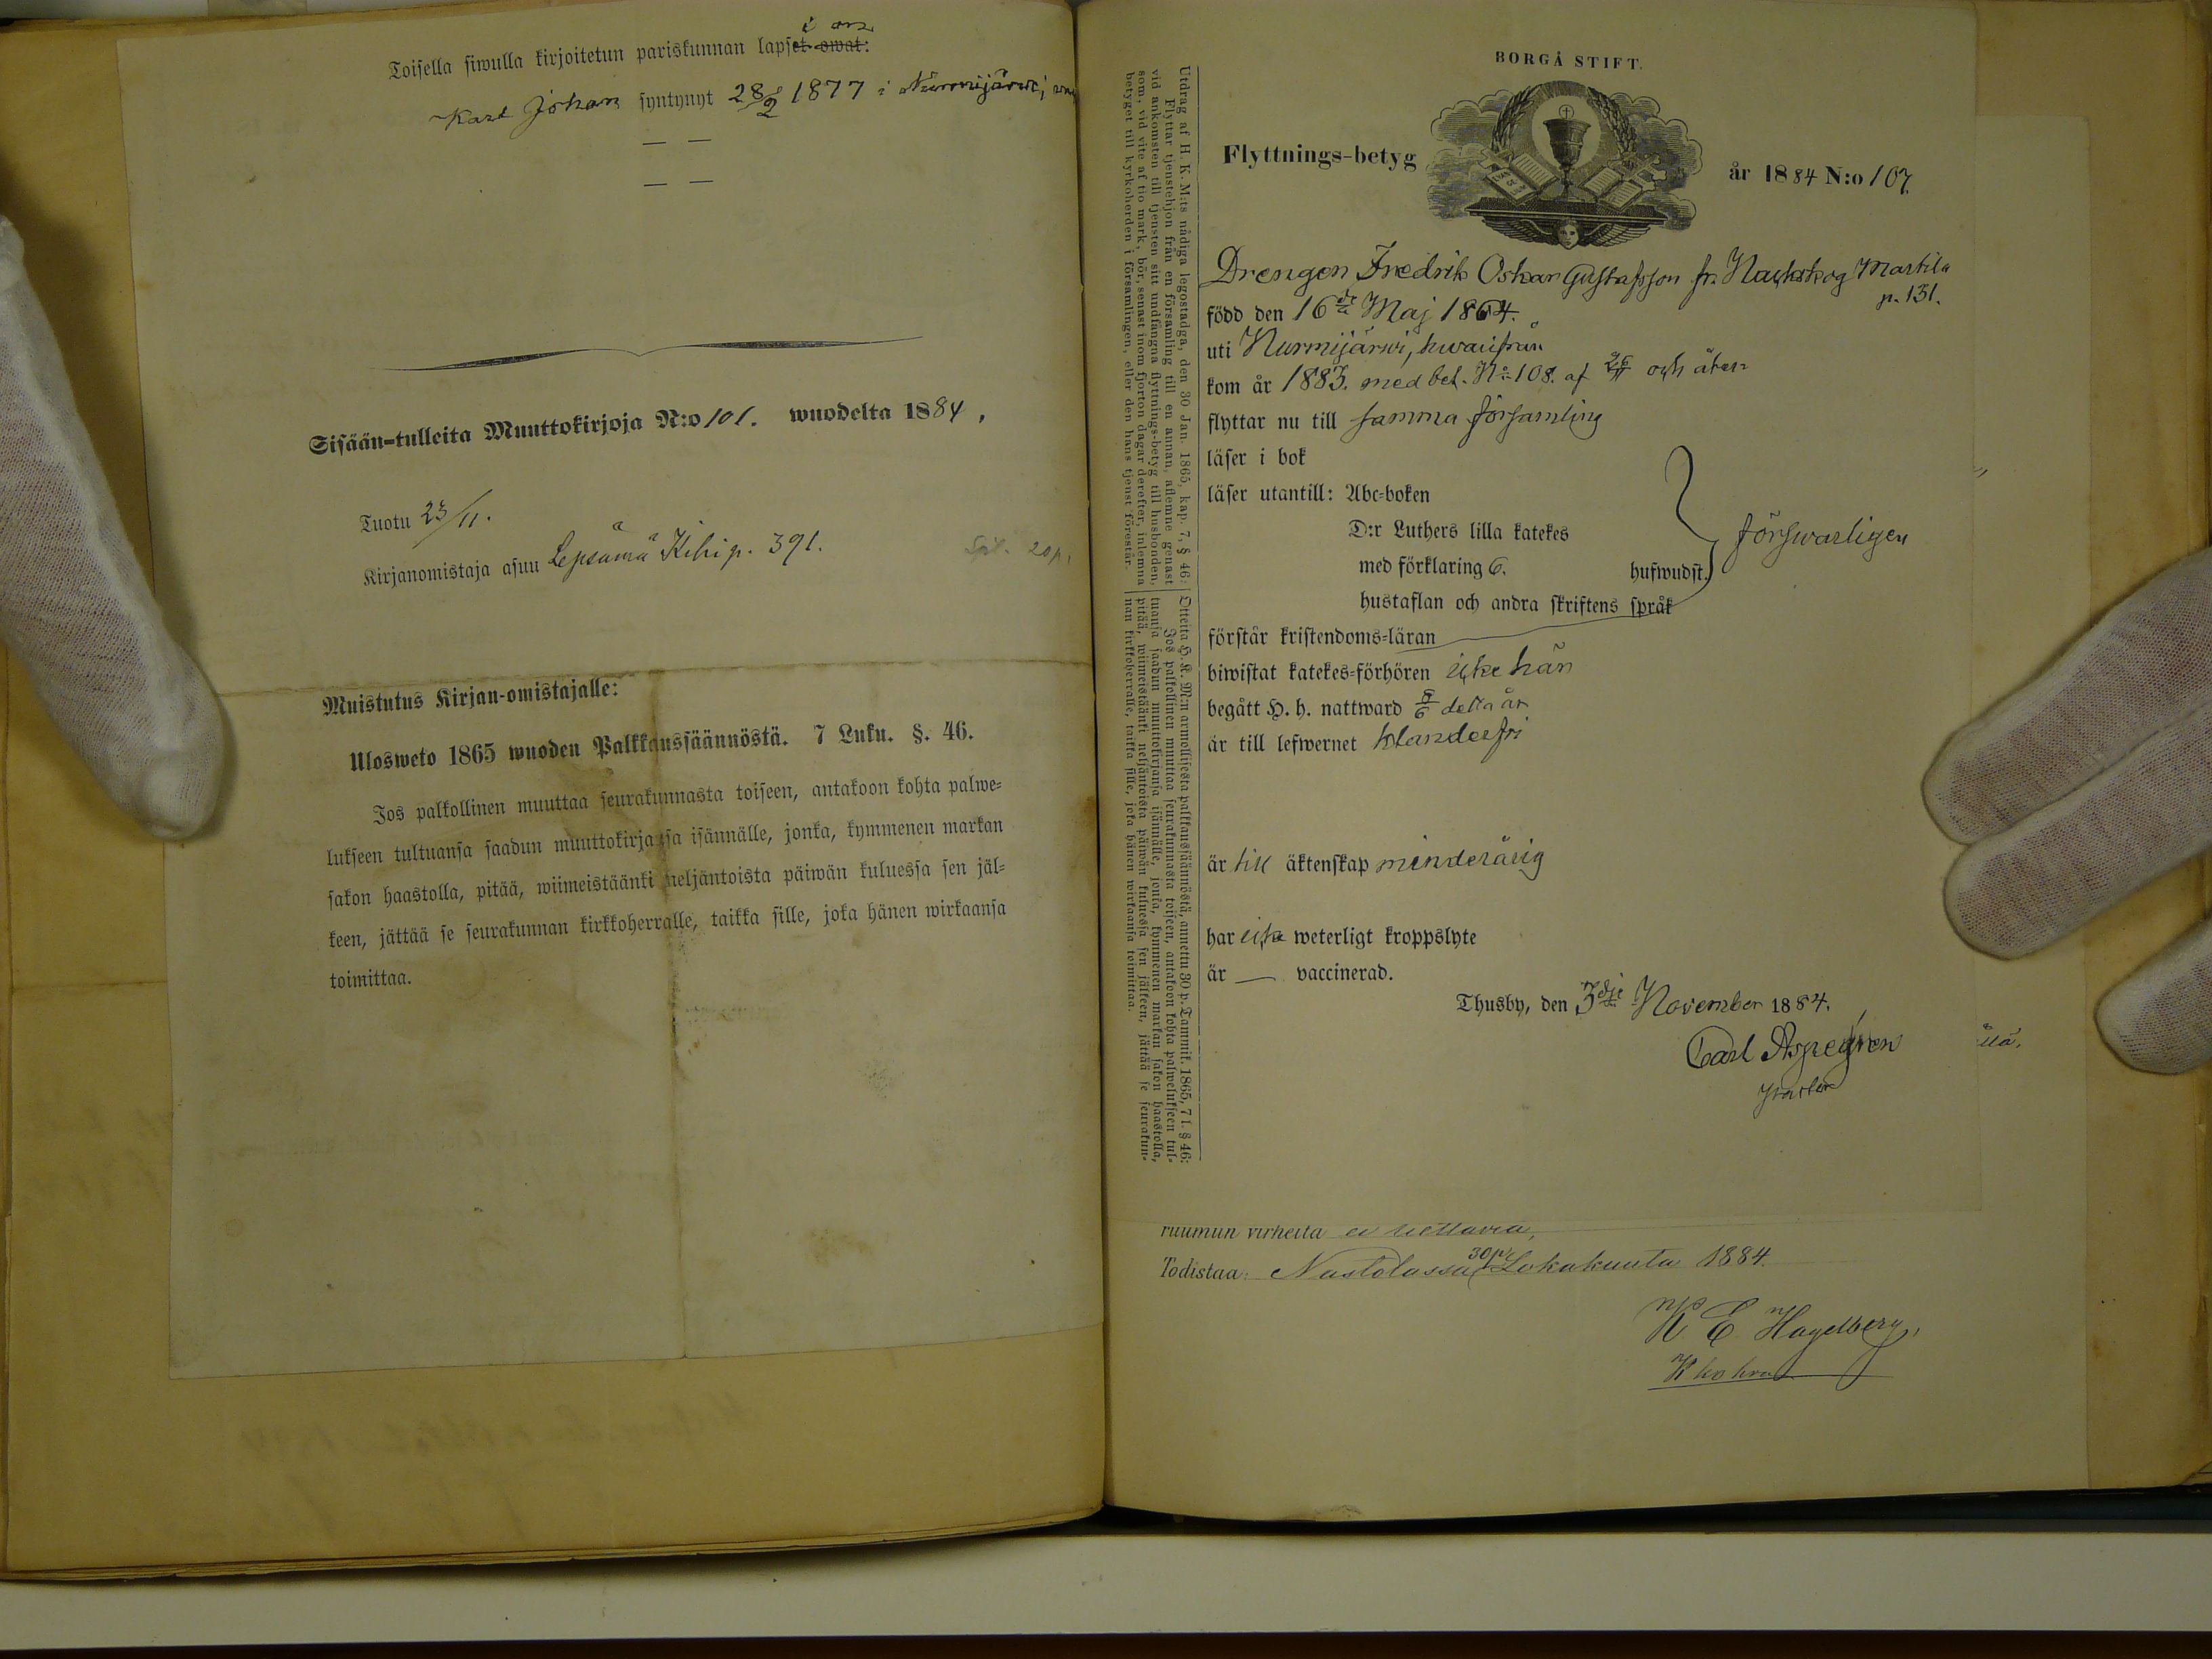 Toisella siwulla kirjoitetun pariskunnan lapset owat: i on
Karl Johan syntynyt 28/2 1877 i Nurmijärwi;
— —
— —
Sisään-tulleita Muuttokirjoja N:o 101. wuodelta 1884,
Tuotu 23/11.
Kirjanomistaja asuu Lepsämä Kihi p. 391.
Muistutus Kirjan-omistajalle:
Ulosweto 1865 wuoden Palkkaussäännöstä. 7 Luku. §. 46.
Jos palkollinen muuttaa seurakunnasta toiseen, antakoon kohta palwe-
lukseen tultuansa saadun muuttokirjansa isännälle, jonka, kymmenen markan
sakon haastolla, pitää, wiimeistäänki neljäntoista päiwän kuluessa sen jäl-
keen, jättää se seurakunnan kirkkoherralle, taikka sille, joka hänen wirkaansa
toimittaa.
Utdrag af H. K. M:ts nådiga legostadga, den 30 Jan. 1865, kap. 7, § 46:
Flyttar tjenstehjon från en församling till en annan, aflemne genast
vid ankomsten till tjensten sitt undfångna flyttnings-betyg till husbonden,
som, vid vite af tio mark, bör, senast inom fjorton dagar derefter, inlemna
betyget till kyrkoherden i församlingen, eller den hans tjenst förestår.
Otteita H. K. M:n armollisesta palkkaussäännöstä, annettu 30 p. Tammik. 1865, 7 l. § 46:
Jos palkollinen muuttaa seurakunnasta toiseen, antakoon kohta palwelukseen tul-
tuansa saadun muuttokirjansa isännälle, jonka, kymmenen markan sakon haastolla,
pitää, wiimeistäänki neljäntoista päiwän kuluessa sen jälkeen, jättää se seurakun-
nan kirkkoherralle, taikka sille, joka hänen wirkaansa toimittaa.
BORGÅ STIFT.
Flyttnings-betyg år 1884 N:o 107.
Drengen Fredrik Oskar Gustafsson fr. Nackskog Martila
p. 131.
född den 16de Maj 1864.
uti Nurmijärwi, hwarifrån
kom år 1883. med bet. No 108. af och åter
flyttar nu till samma församling
läser i bok
läser utantill: Abc-boken
D:r Luthers lilla katekes
med förklaring 6. hufwudst. } förswarligen
hustaflan och andra skriftens språk
förstår kristendoms-läran
biwistat katekes-förhören icke här
begått H. h. nattward 8/6 detta år
är till lefwernet klanderfri
är till äktenskap minderårig
har icke weterligt kroppslyte
är — vaccinerad.
Thusby, den 3dje November 1884.
Carl Aspegren
Pastor
ruumun virheitä ei tiettäviä,
Todistaa: Nastolassa 30 p. Lokakuuta 1884.
K E Hagelberg,